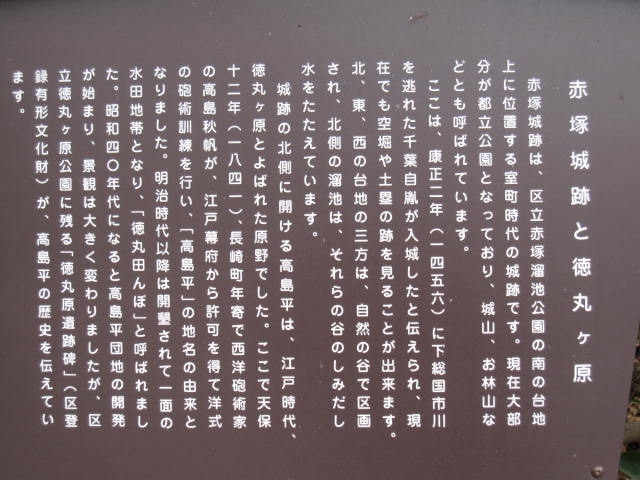 赤塚城跡と徳丸ヶ原
赤塚城跡は、区立赤塚溜池公園の南の台地
上に位置する室町時代の城跡です。現在大部
分が都立公園となっており、城山、お林山な
どとも呼ばれています。
ここは、康正二年(一四五六)に下総国市川
を逃れた千葉自胤が入城したと伝えられ、現
在でも空堀や土塁の跡を見ることが出来ます。
北、東、西の台地の三方は、自然の谷で区画
され、北側の溜池は、それらの谷のしみだし
水をたたえています。
城跡の北側に開ける高島平は、江戸時代、
徳丸ヶ原とよばれた原野でした。ここで天保
十二年(一八四一)、長崎町年寄で西洋砲術家
の高島秋帆が、江戸幕府から許可を得て洋式
の砲術訓練を行い、「高島平」の地名の由来と
なりました。明治時代以降は開墾されて一面の
水田地帯となり、「徳丸田んぼ」と呼ばれまし
た。昭和四〇年代になると高島平団地の開発
が始まり、景観は大きく変わりましたが、区
立徳丸ヶ原公園に残る「徳丸原遺跡碑」(区登
録有形文化財)が、高島平の歴史を伝えてい
ます。